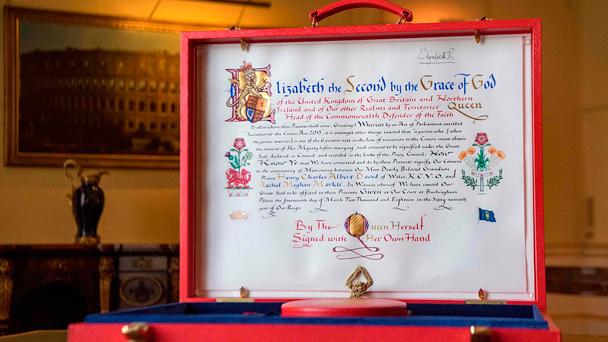 Elizabeth R
Elizabeth the Second by the Grace of God
of the United Kingdom of Great Britain and Northern
Ireland and of Our other Realms and Territories Queen
Head of the Commonwealth Defender of the Faith
To all to whom these Presents shall come, Greeting! Whereas by an Act of Parliament entitled
Succession to the Crown Act 2013, it is amongst other things enacted that "a person who [when
the person marries] is one of the 6 persons next in the line of succession to the Crown must obtain
the consent of Her Majesty before marrying" such consent to be signified under the Great
Seal, declared in Council, and recorded in the books of the Privy Council; Now
Know Ye that We have consented and do by these Presents signify Our Consent
to the contracting of Matrimony between Our Most Dearly Beloved Grandson
Prince Henry Charles Albert David of Wales, K.C.V.O., and
Rachel Meghan Markle. In Witness whereof We have caused Our
Great Seal to be affixed to these Presents Given at Our Court at Buckingham
Palace the fourteenth day of March Two Thousand and Eighteen in the Sixty-seventh
year of Our Reign
By The Queen Herself
Signed with Her Own Hand